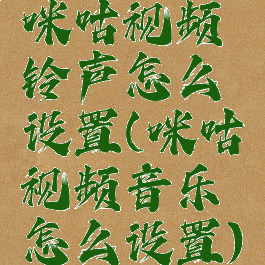 咪咕视频
铃声怎么
设置(咪咕
视频音乐
怎么设置)